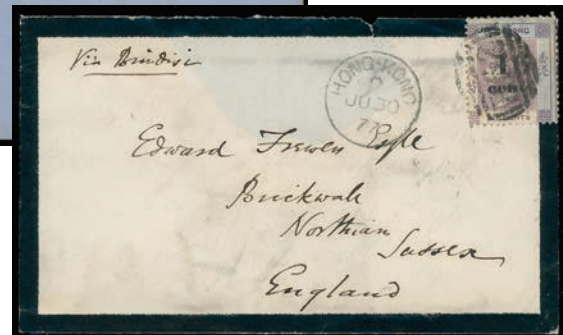 Via Brindisi
HONG-KONG
JU 30
77
Edward Frewen Esqre
Brickwall
Northiam
Sussex
England